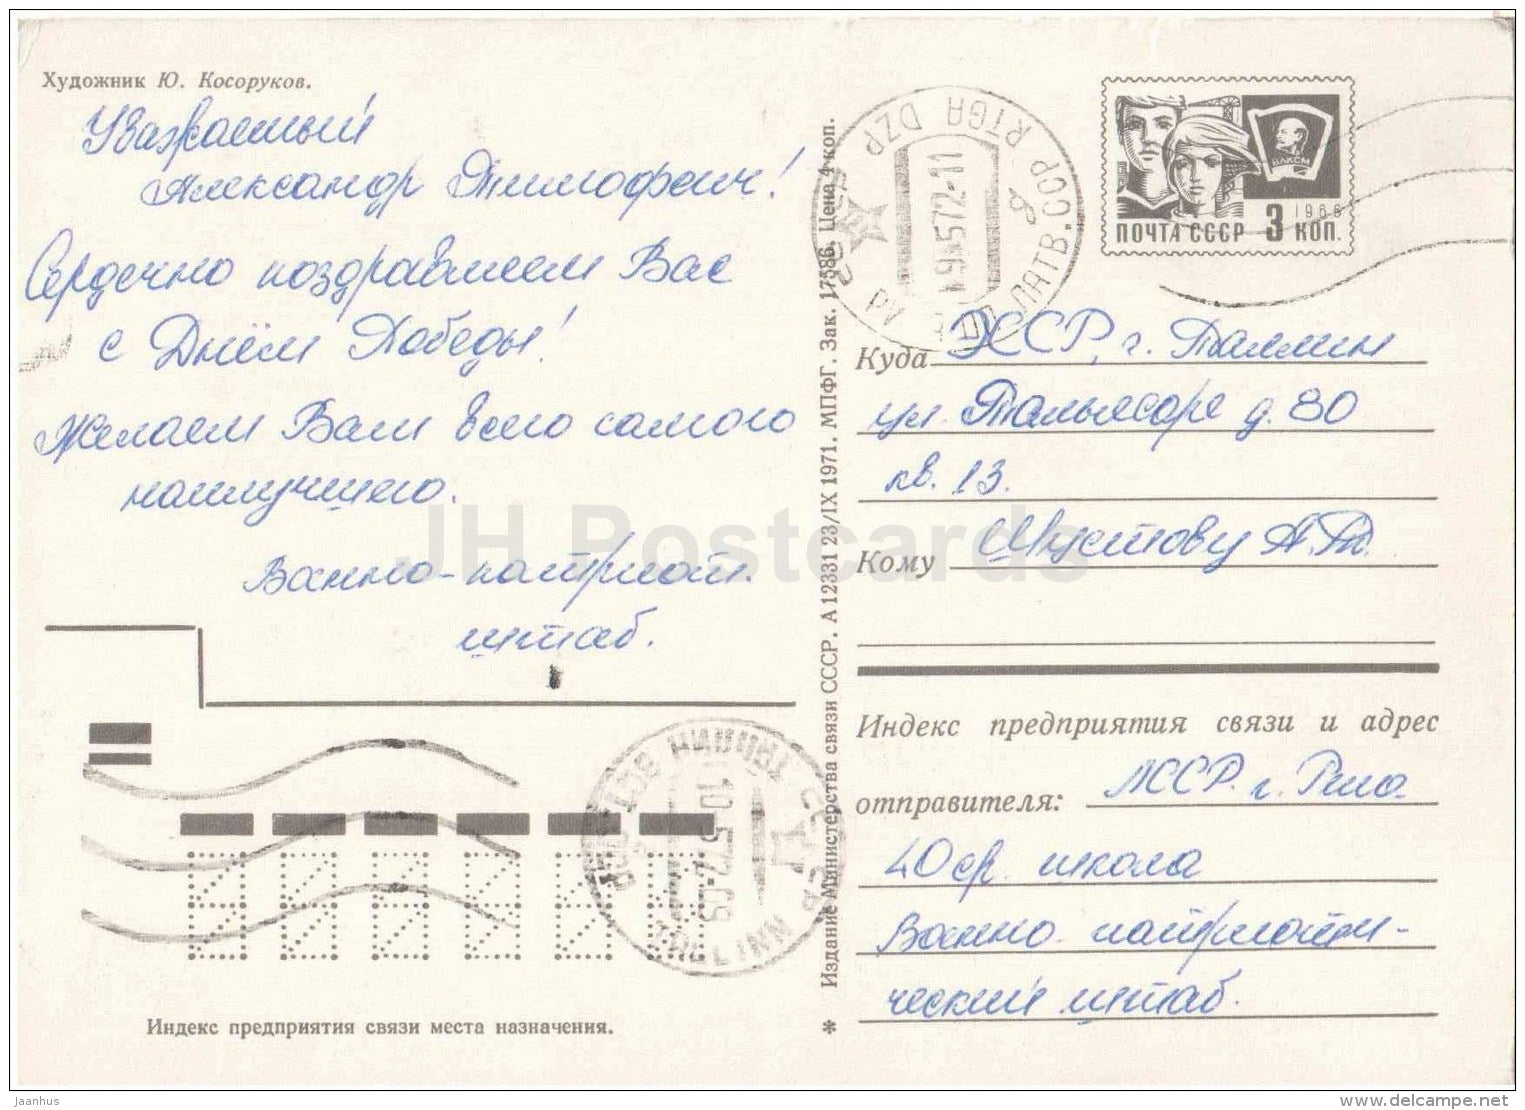 Художник Ю. Косоруков.
Уважаемый
Александр Тимофеич!
Сердечно поздравляем Вас
с Днём Победы!
Желаем Вам всего самого
наилучшего.
Военно-патриот.
штаб.
Индекс предприятия связи места назначения.
* Издание Министерства связи СССР. А 12331 23/IX 1971. МПФГ. Зак. 17586. Цена 4 коп.
RIGA DZP
ЛАТВ. ССР
-9-572-11
ВЛКСМ
1966
ПОЧТА СССР 3 КОП.
Куда ЭССР, г. Таллин
ул. Тальясоре д. 80
кв. 13.
Кому Шустову А.Т.
Индекс предприятия связи и адрес
отправителя: ЛССР. г. Рига
40 ср. школа
Военно-патриоти-
ческий штаб.
10-572-09
TALLINN
JH Postcards
Jaanhus
delcampe.net